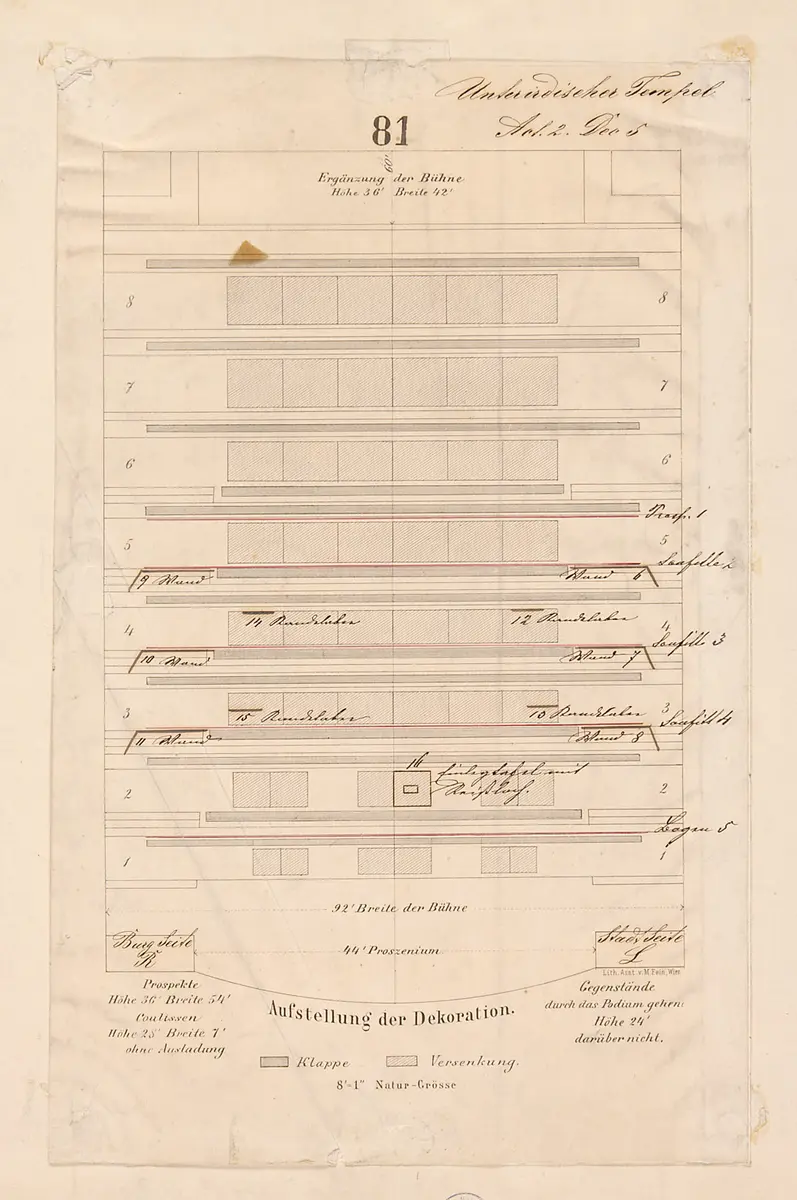 Unterirdischer Tempel
81
Act. 2. Dec 5
60'
Ergänzung der Bühne
Höhe 36' Breite 42'
8 8
7 7
6 6
Prosp. 1
5 5
Soufitte 2
9 Wand Wand 6
4 14 Kandelaber 12 Kandelaber 4
Soufitte 3
10 Wand Wand 7
3 15 Kandelaber Kandelaber 3
Soufitt 4
11 Wand Wand 8
16
Einlegtafel mit
2 2
Bogen 5
1 1
92' Breite der Bühne
Burg Seite
R
44' Proszenium
Stadt Seite
L
Lith. Anst. v. M. Fein, Wien
Prospekte
Höhe 36' Breite 54'
Coulissen
Höhe 28' Breite 7'
ohne Ausladung
Gegenstände
durch das Podium gehen:
Höhe 24'
darüber nicht.
Aufstellung der Dekoration.
Klappe Versenkung.
8'-1" Natur-Grösse